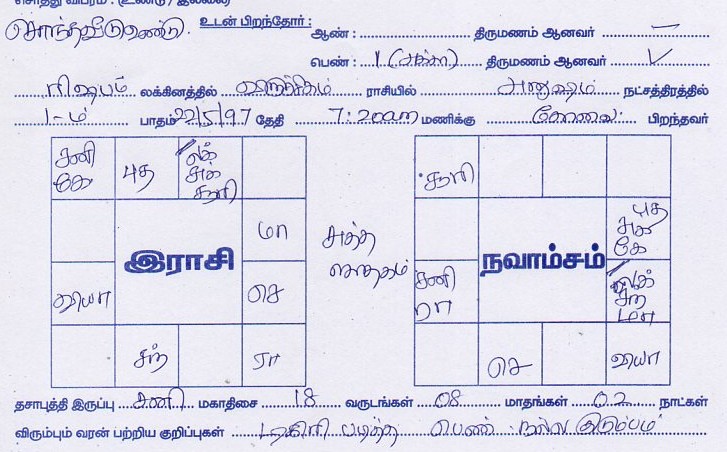 சொத்து விபரம் : (உண்டு / இல்லை)
சொந்தவீடு உண்டு. உடன் பிறந்தோர் : ஆண் : திருமணம் ஆனவர் —
பெண் : 1 (அக்கா) திருமணம் ஆனவர் ✓
ரிஷபம் லக்கினத்தில் விருச்சிகம் ராசியில் அனுஷம் நட்சத்திரத்தில்
1-ம் பாதம் 22/5/97 தேதி 7:20am மணிக்கு கோவை பிறந்தவர்
சனி கே புத லக் சுக் சூரி
மா
இராசி
செ
வியா
சந் ரா
சுத்த ஜாதகம்
சூரி
புத சுக் கே
நவாம்சம்
சனி ரா லக் சந் மா
செ வியா
தசாபுத்தி இருப்பு சனி மகாதிசை 18 வருடங்கள் 08 மாதங்கள் 02 நாட்கள்
விரும்பும் வரன் பற்றிய குறிப்புகள் டிகிரி படித்த பெண் நல்ல குடும்பம்